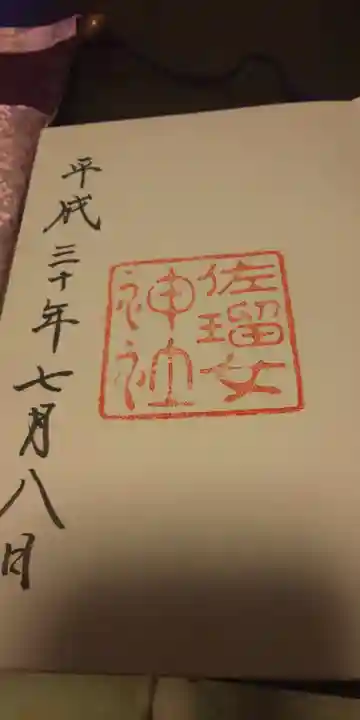 佐瑠女
神社
平成三十年七月八日